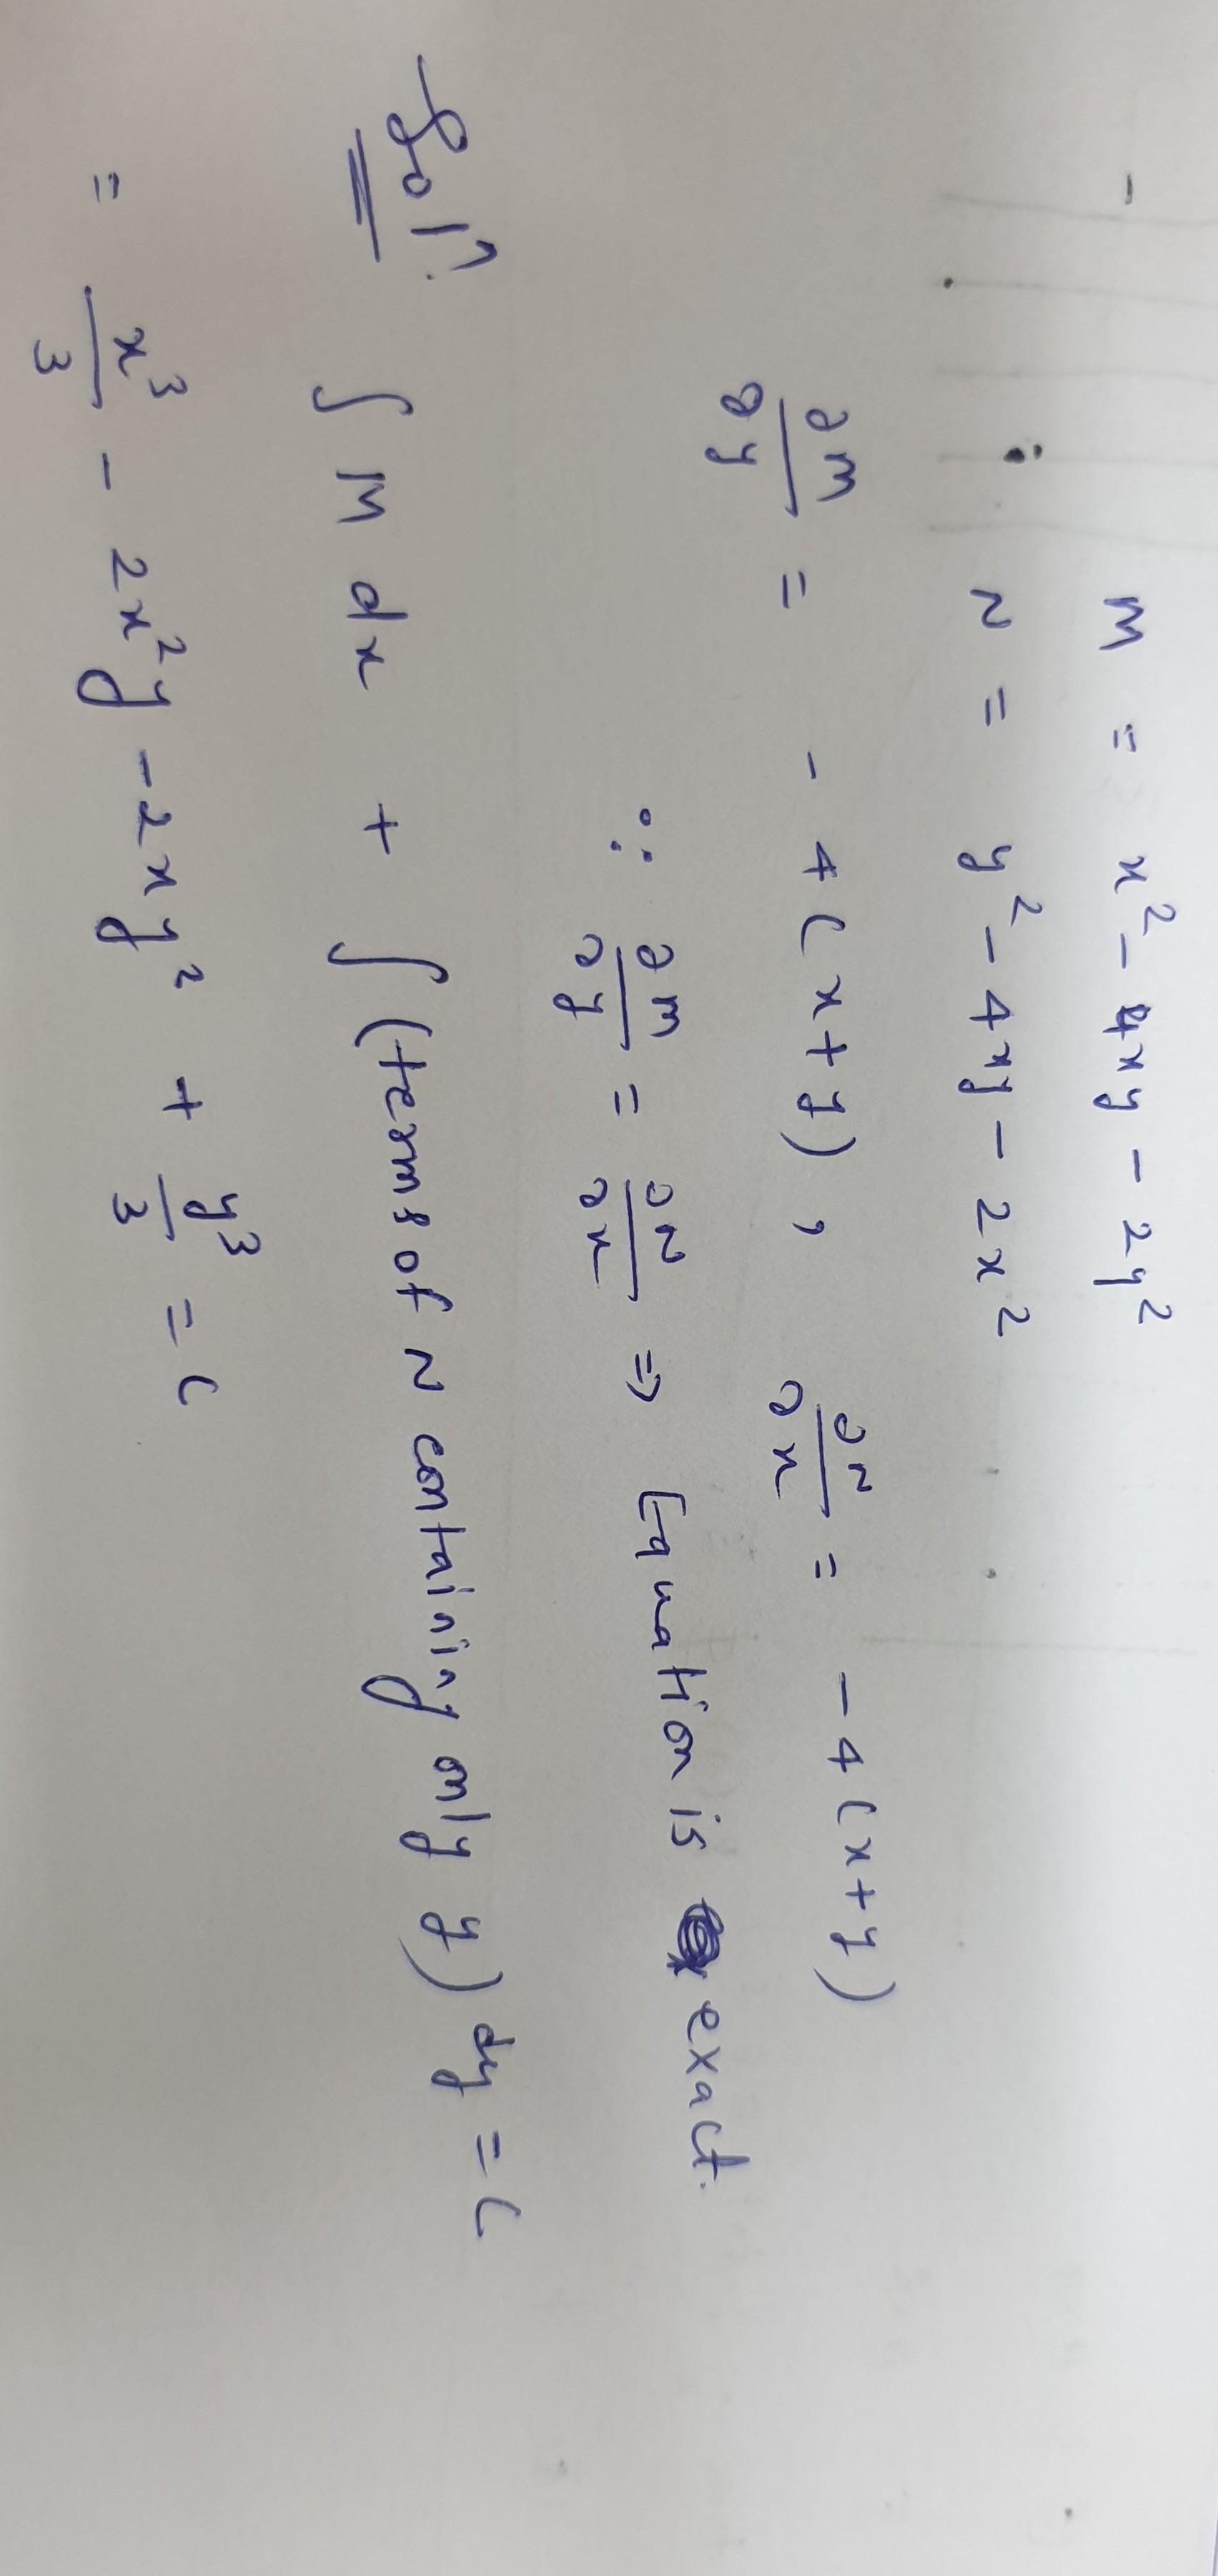 M = x² - 4xy - 2y²
N = y² - 4xy - 2x²
∂M/∂y = - 4(x+y), ∂N/∂x = - 4(x+y)
∵ ∂M/∂y = ∂N/∂x ⇒ Equation is exact.
Solⁿ. ∫ M dx + ∫ (terms of N containing only y) dy = C
= x³/3 - 2x²y - 2xy² + y³/3 = C